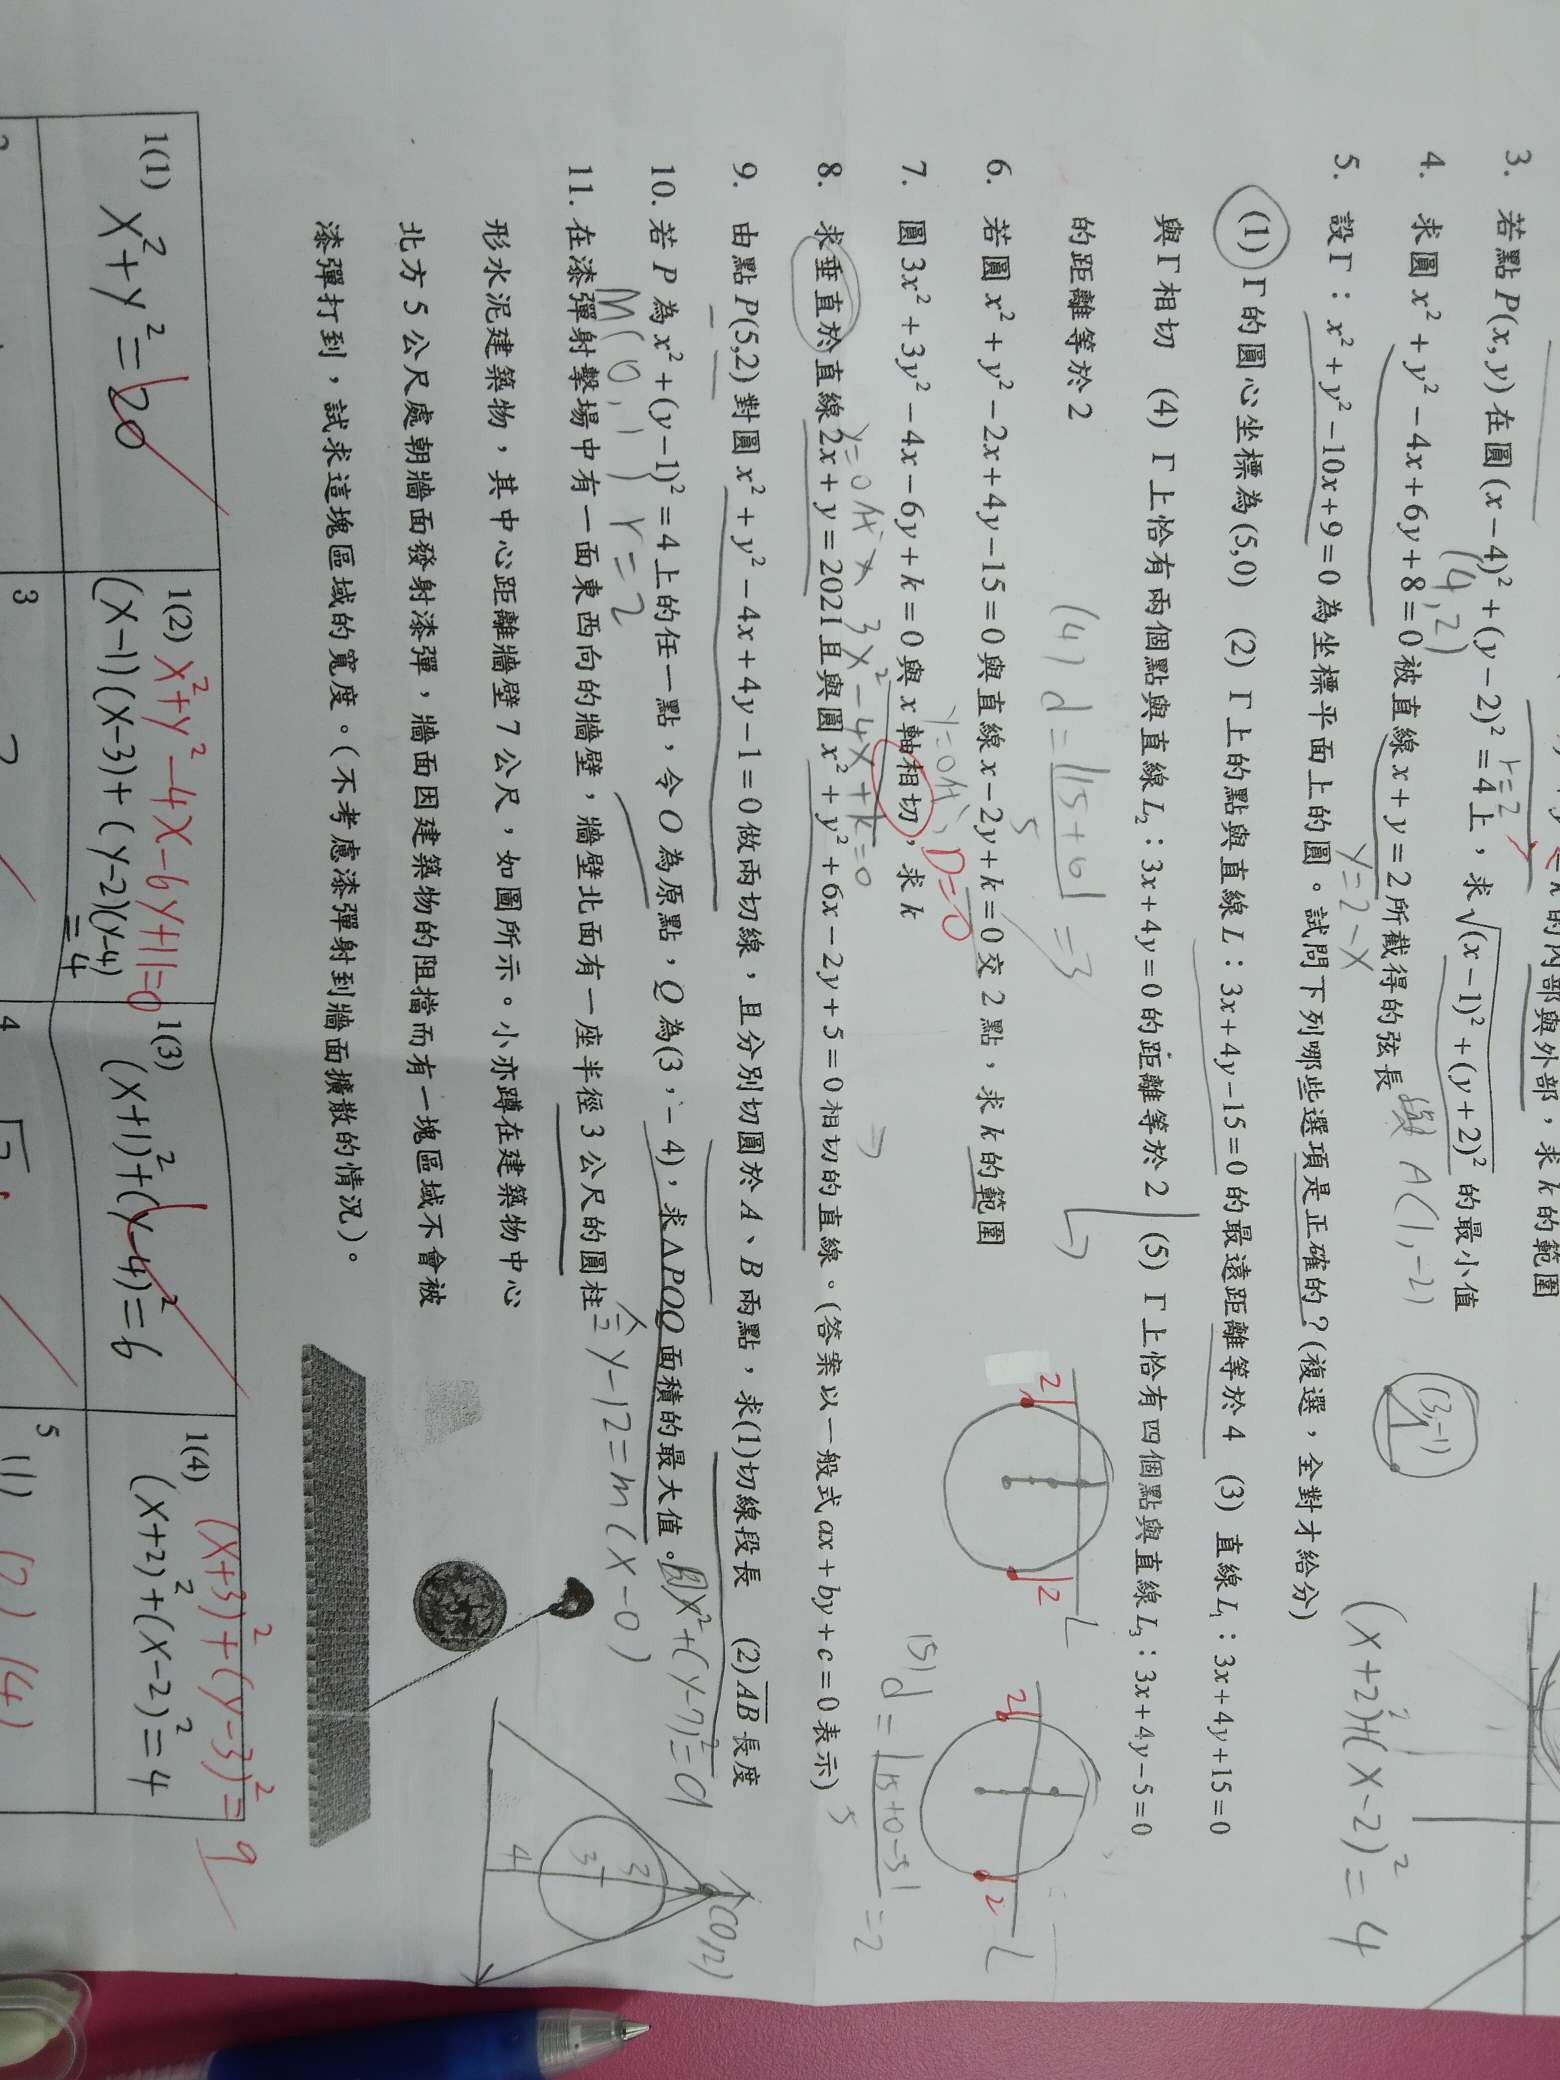 的內部與外部，求k的範圍
3. 若點P(x,y)在圓(x-4)²+(y-2)²=4上，求√(x-1)²+(y+2)²的最小值
(4,2) r=2 A(1,-2)
4. 求圓x²+y²-4x+6y+8=0被直線x+y=2所截得的弦長
y=2-x
(3,-1)
5. 設Γ：x²+y²-10x+9=0為坐標平面上的圓。試問下列哪些選項是正確的？(複選，全對才給分)
(x+2)²+(x-2)²=4
(1) Γ的圓心坐標為(5,0) (2) Γ上的點與直線L：3x+4y-15=0的最遠距離等於4 (3) 直線L₁：3x+4y+15=0
與Γ相切 (4) Γ上恰有兩個點與直線L₂：3x+4y=0的距離等於2 (5) Γ上恰有四個點與直線L₃：3x+4y-5=0
的距離等於2
(4) d=|15+0|/5=3
2 2 L
2 2 L
6. 若圓x²+y²-2x+4y-15=0與直線x-2y+k=0交2點，求k的範圍
y=0代入 D=0
7. 圓3x²+3y²-4x-6y+k=0與x軸相切，求k
y=0代入 3x²-4x+k=0
(5) d=|15+0-5|/5=2
8. 求垂直於直線2x+y=2021且與圓x²+y²+6x-2y+5=0相切的直線。(答案以一般式ax+by+c=0表示)
9. 由點P(5,2)對圓x²+y²-4x+4y-1=0做兩切線，且分別切圓於A、B兩點，求(1)切線段長 (2)AB長度
10. 若P為x²+(y-1)²=4上的任一點，令O為原點，Q為(3，-4)，求ΔPOQ面積的最大值。
圓x²+(y-7)²=9
M(0,1) r=2
令 y-12=m(x-0)
11. 在漆彈射擊場中有一面東西向的牆壁，牆壁北面有一座半徑3公尺的圓柱
形水泥建築物，其中心距離牆壁7公尺，如圖所示。小亦蹲在建築物中心
北方5公尺處朝牆面發射漆彈，牆面因建築物的阻擋而有一塊區域不會被
漆彈打到，試求這塊區域的寬度。(不考慮漆彈射到牆面擴散的情況)。
(0,12)
3 3 4
1(1) x²+y²=20
1(2) x²+y²-4x-6y+11=0
(x-1)(x-3)+(y-2)(y-4)
=4
1(3) (x+1)²+(y-4)²=6
1(4) (x+3)²+(y-3)²=9
(x+2)²+(x-2)²=4
3
4
5 (1) (2) (4)